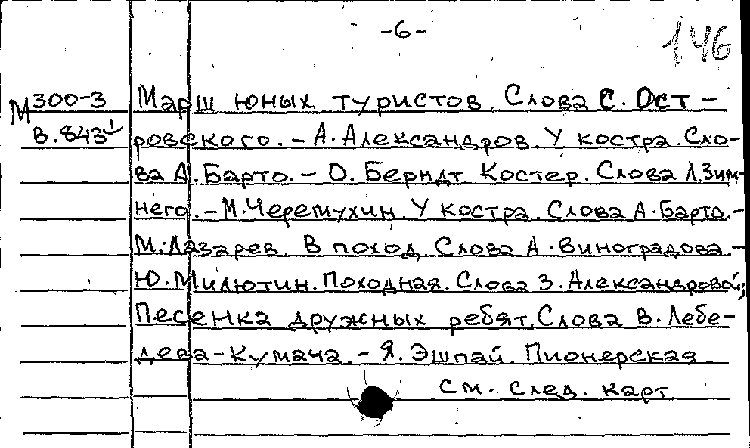 -6-
146
М 300-3
В.843¹
Марш юных туристов. Слова С. Ост-
ровского. - А. Александров. У костра. Сло-
ва А. Барто. - О. Берндт. Костер. Слова Л. Зим-
него. - М. Черемухин. У костра. Слова А. Барто. -
М. Лазарев. В поход. Слова А. Виноградова. -
Ю. Милютин. Походная. Слова З. Александровой;
Песенка дружных ребят. Слова В. Лебе-
дева-Кумача. - Я. Эшпай. Пионерская
см. след. карт